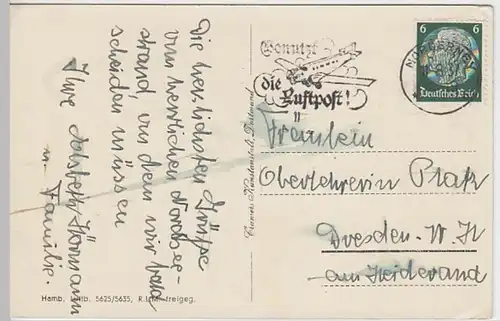 Die herzlichsten Grüsse
vom herrlichen Nordsee-
strand, von dem wir bald
scheiden müssen
Ihre
u. Familie.
Hamb. 5625/5635, R.L.M. freigeg.
Cramers Kunstanstalt, Dortmund
Benutzt
die
Luftpost!
6 6
Deutsches Reich
NORDERNEY
Fräulein
Oberlehrerin Platz
Dresden-W. H
am Heiderand